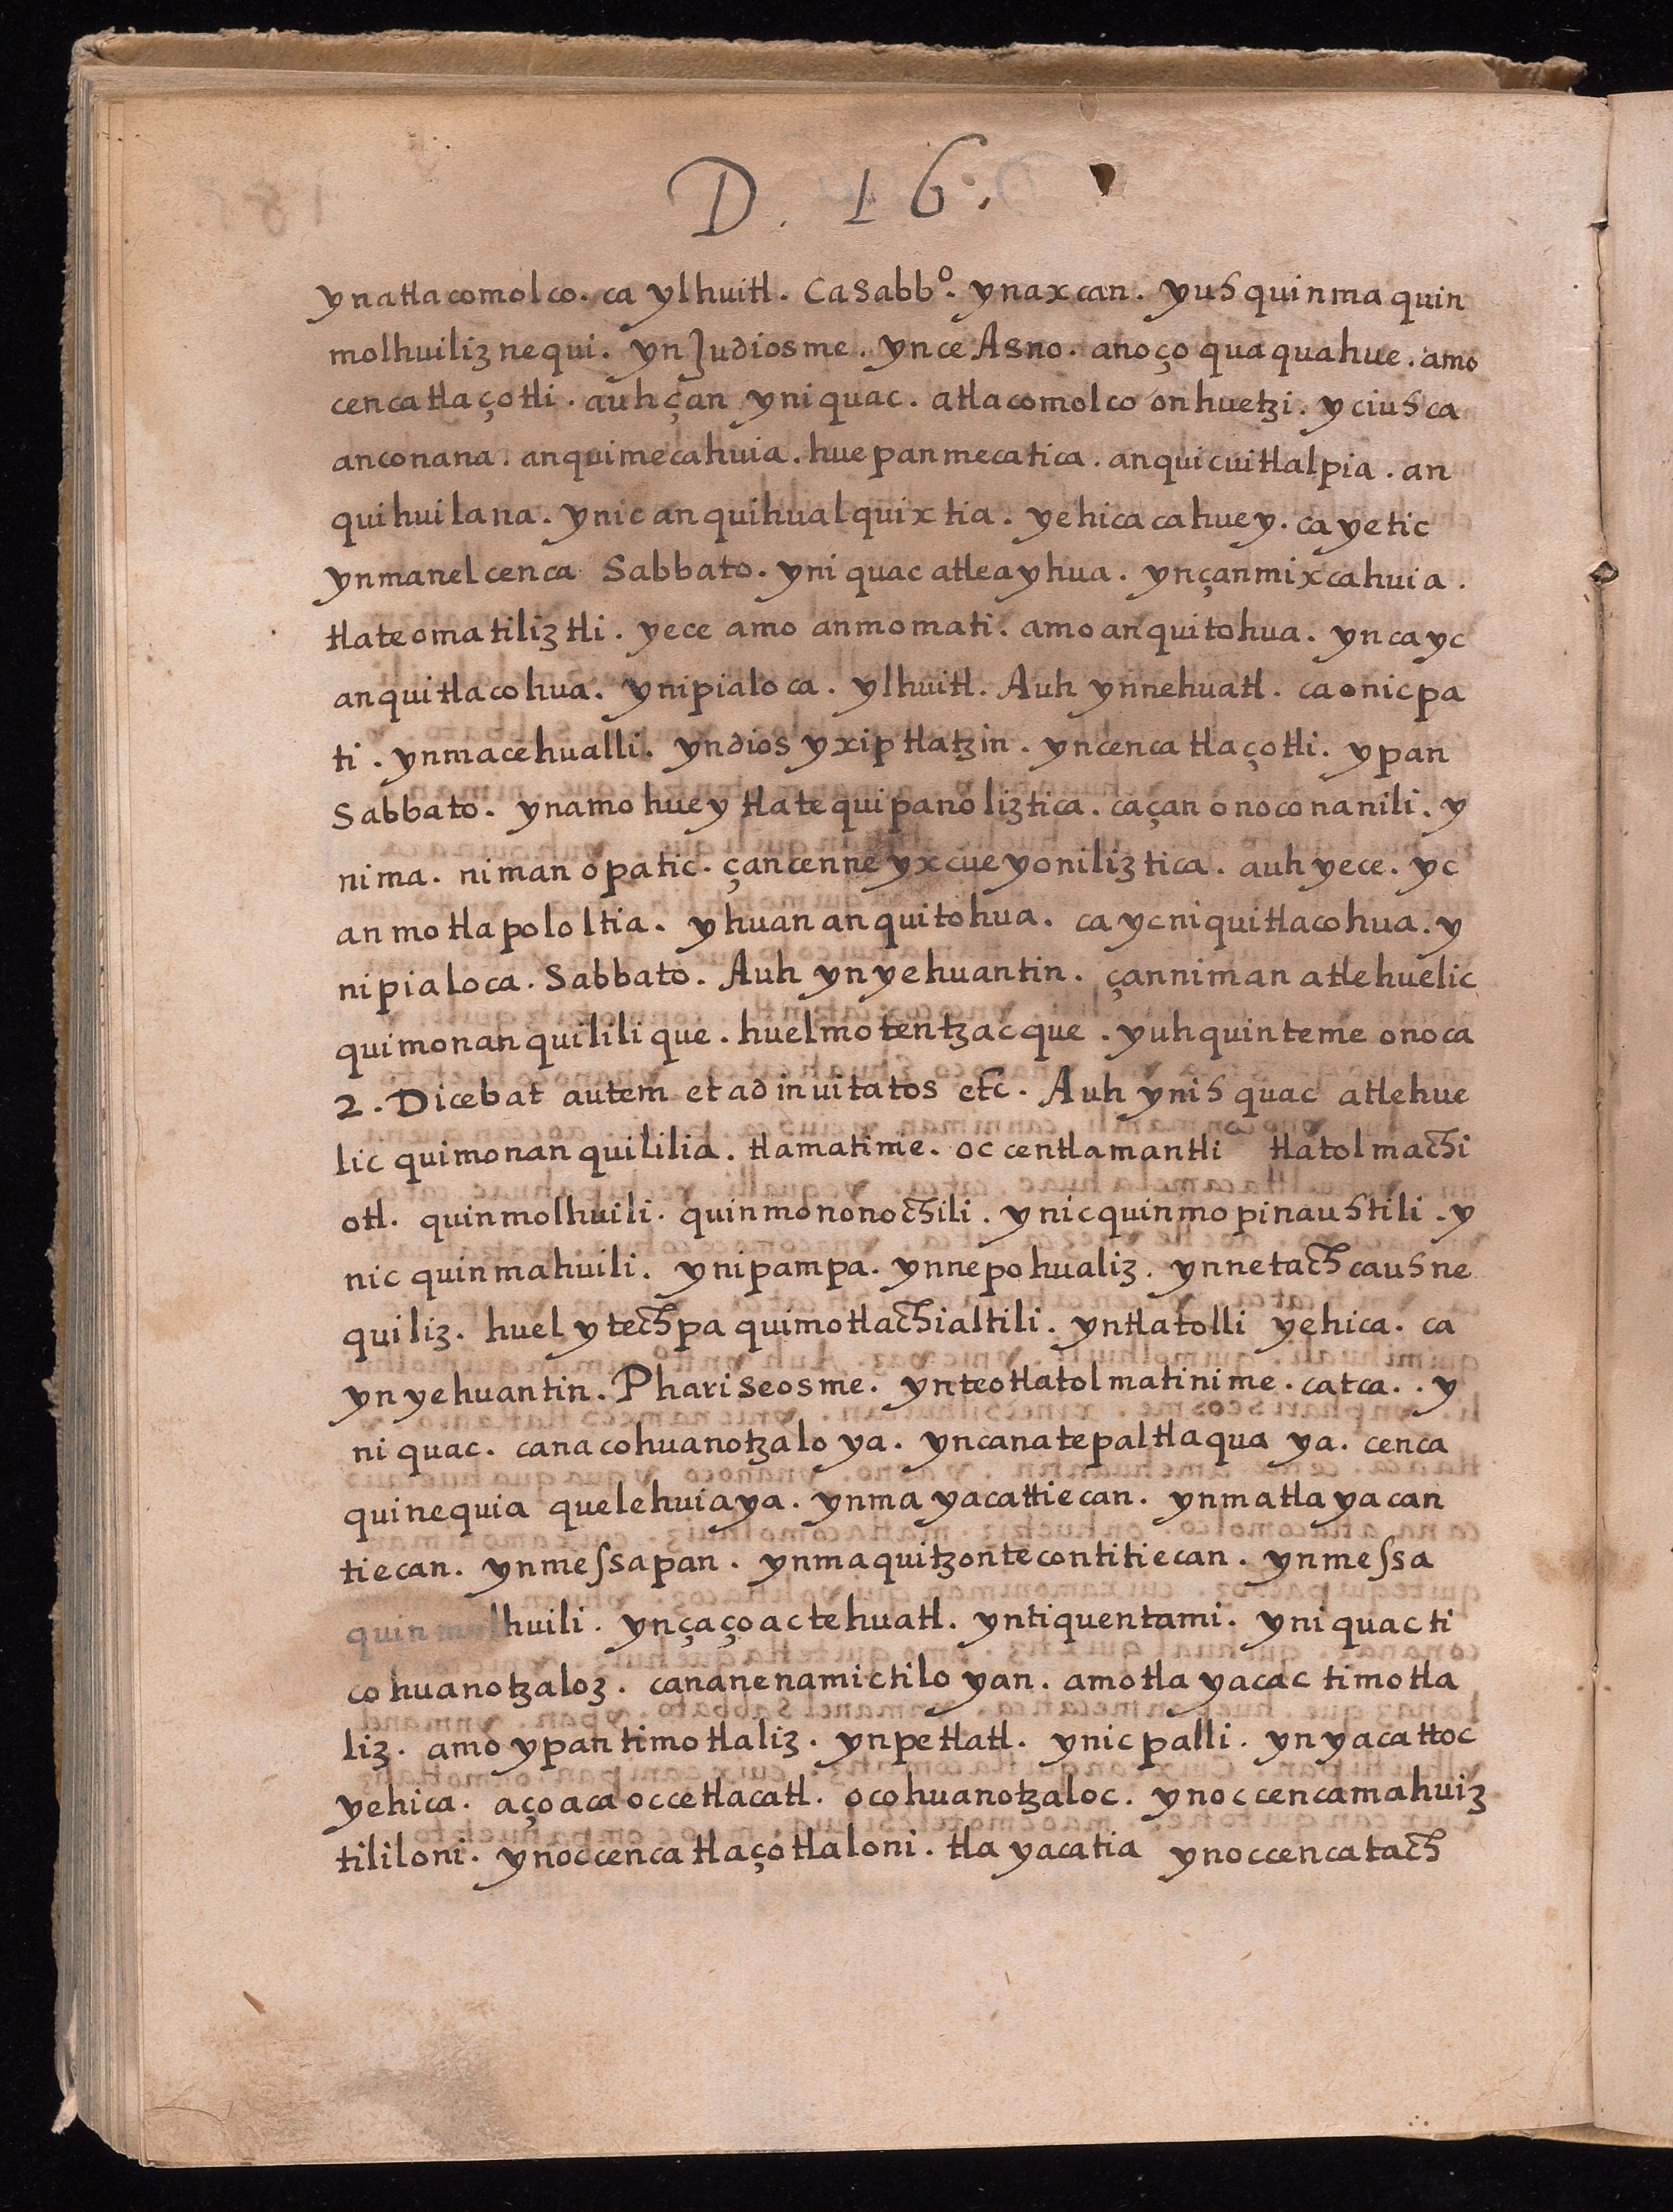 D. 16.
ynatlacomolco. ca ylhuitl. Ca Sabbº. ynaxcan. yuh quinma quin
molhuiliz nequi. yn Judiosme. ynce Asno. anoço quaquahue. amo
cenca tlaçotli. auh çan yniquac. atlacomolco onhuetzi. yciuhca
anconana. anquimecahuia. huepanmecatica. anquicuitlalpia. an
quihuilana. ynic anquihualquixtia. yehica ca huey. ca yetic
ynmanel cenca Sabbato. yniquac atle ayhua. ynçanmixcahuia.
tlateomatiliztli. yece amo anmomati. amo anquitohua. ynca yc
anquitlacohua. ynipialoca. ylhuitl. Auh ynnehuatl. ca onicpa
ti. ynmacehualli. yndios yxiptlatzin. yncenca tlaçotli. ypan
Sabbato. ynamo huey tlatequipanoliztica. caçan onoconanili. y
nima. niman opatic. çancenne yxcueyoniliztica. auh yece. yc
anmotlapololtia. yhuan anquitohua. ca yc niquitlacohua. y
nipialoca. Sabbato. Auh ynyehuantin. çanniman atlehuelic
quimonanquililique. huelmotentzacque. yuhquinteme onoca
2. Dicebat autem et ad inuitatos etc. Auh ynih quac atlehue
lic quimonanquililia. tlamatime. oc centlamantli tlatolmachi
otl. quinmolhuili. quinmononochili. ynicquinmopinauhtili. y
nic quinmahuili. ynipampa. ynnepohualiz. ynnetachcauhne
quiliz. huel ytechpa quimotlachialtili. yntlatolli yehica. ca
ynyehuantin. Phariseosme. ynteotlatolmatinime. catca.. y
niquac. cana cohuanotzaloya. yncana tepaltlaquaya. cenca
quinequia quelehuiaya. ynma yacattiecan. ynma tlayacan
tiecan. ynmessapan. ynmaquitzontecontitiecan. ynmessa
quinmolhuili. ynçaço ac tehuatl. yntiquentami. yniquac ti
cohuanotzaloz. cana nenamictiloyan. amo tlayacac timotla
liz. amo ypan timotlaliz. ynpetlatl. ynicpalli. ynyacattoc
yehica. aço aca occetlacatl. ocohuanotzaloc. ynoccencamahuiz
tililoni. ynoccenca tlaçotlaloni. tlayacatia ynoccencatach